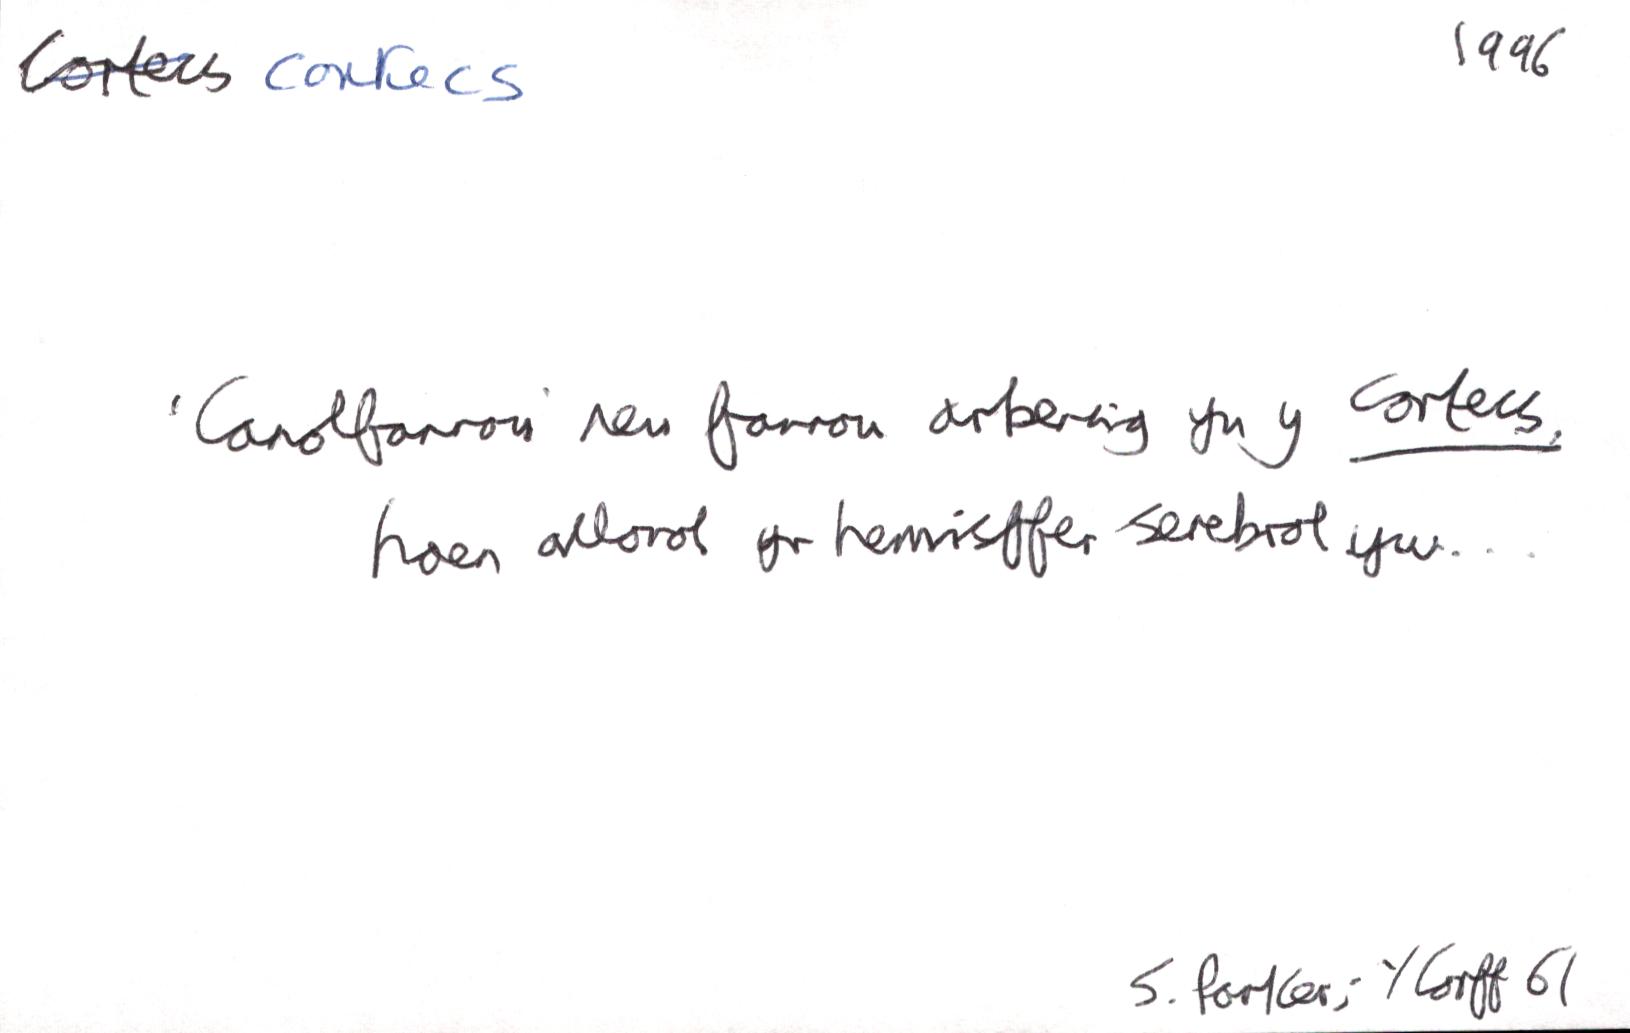 Cortecs cortecs 1996
'Canolfannau' neu fannau arbennig yn y Cortecs,
haen allanol yr hemisffer serebrol yw....
S. Parker; Y Corff 61